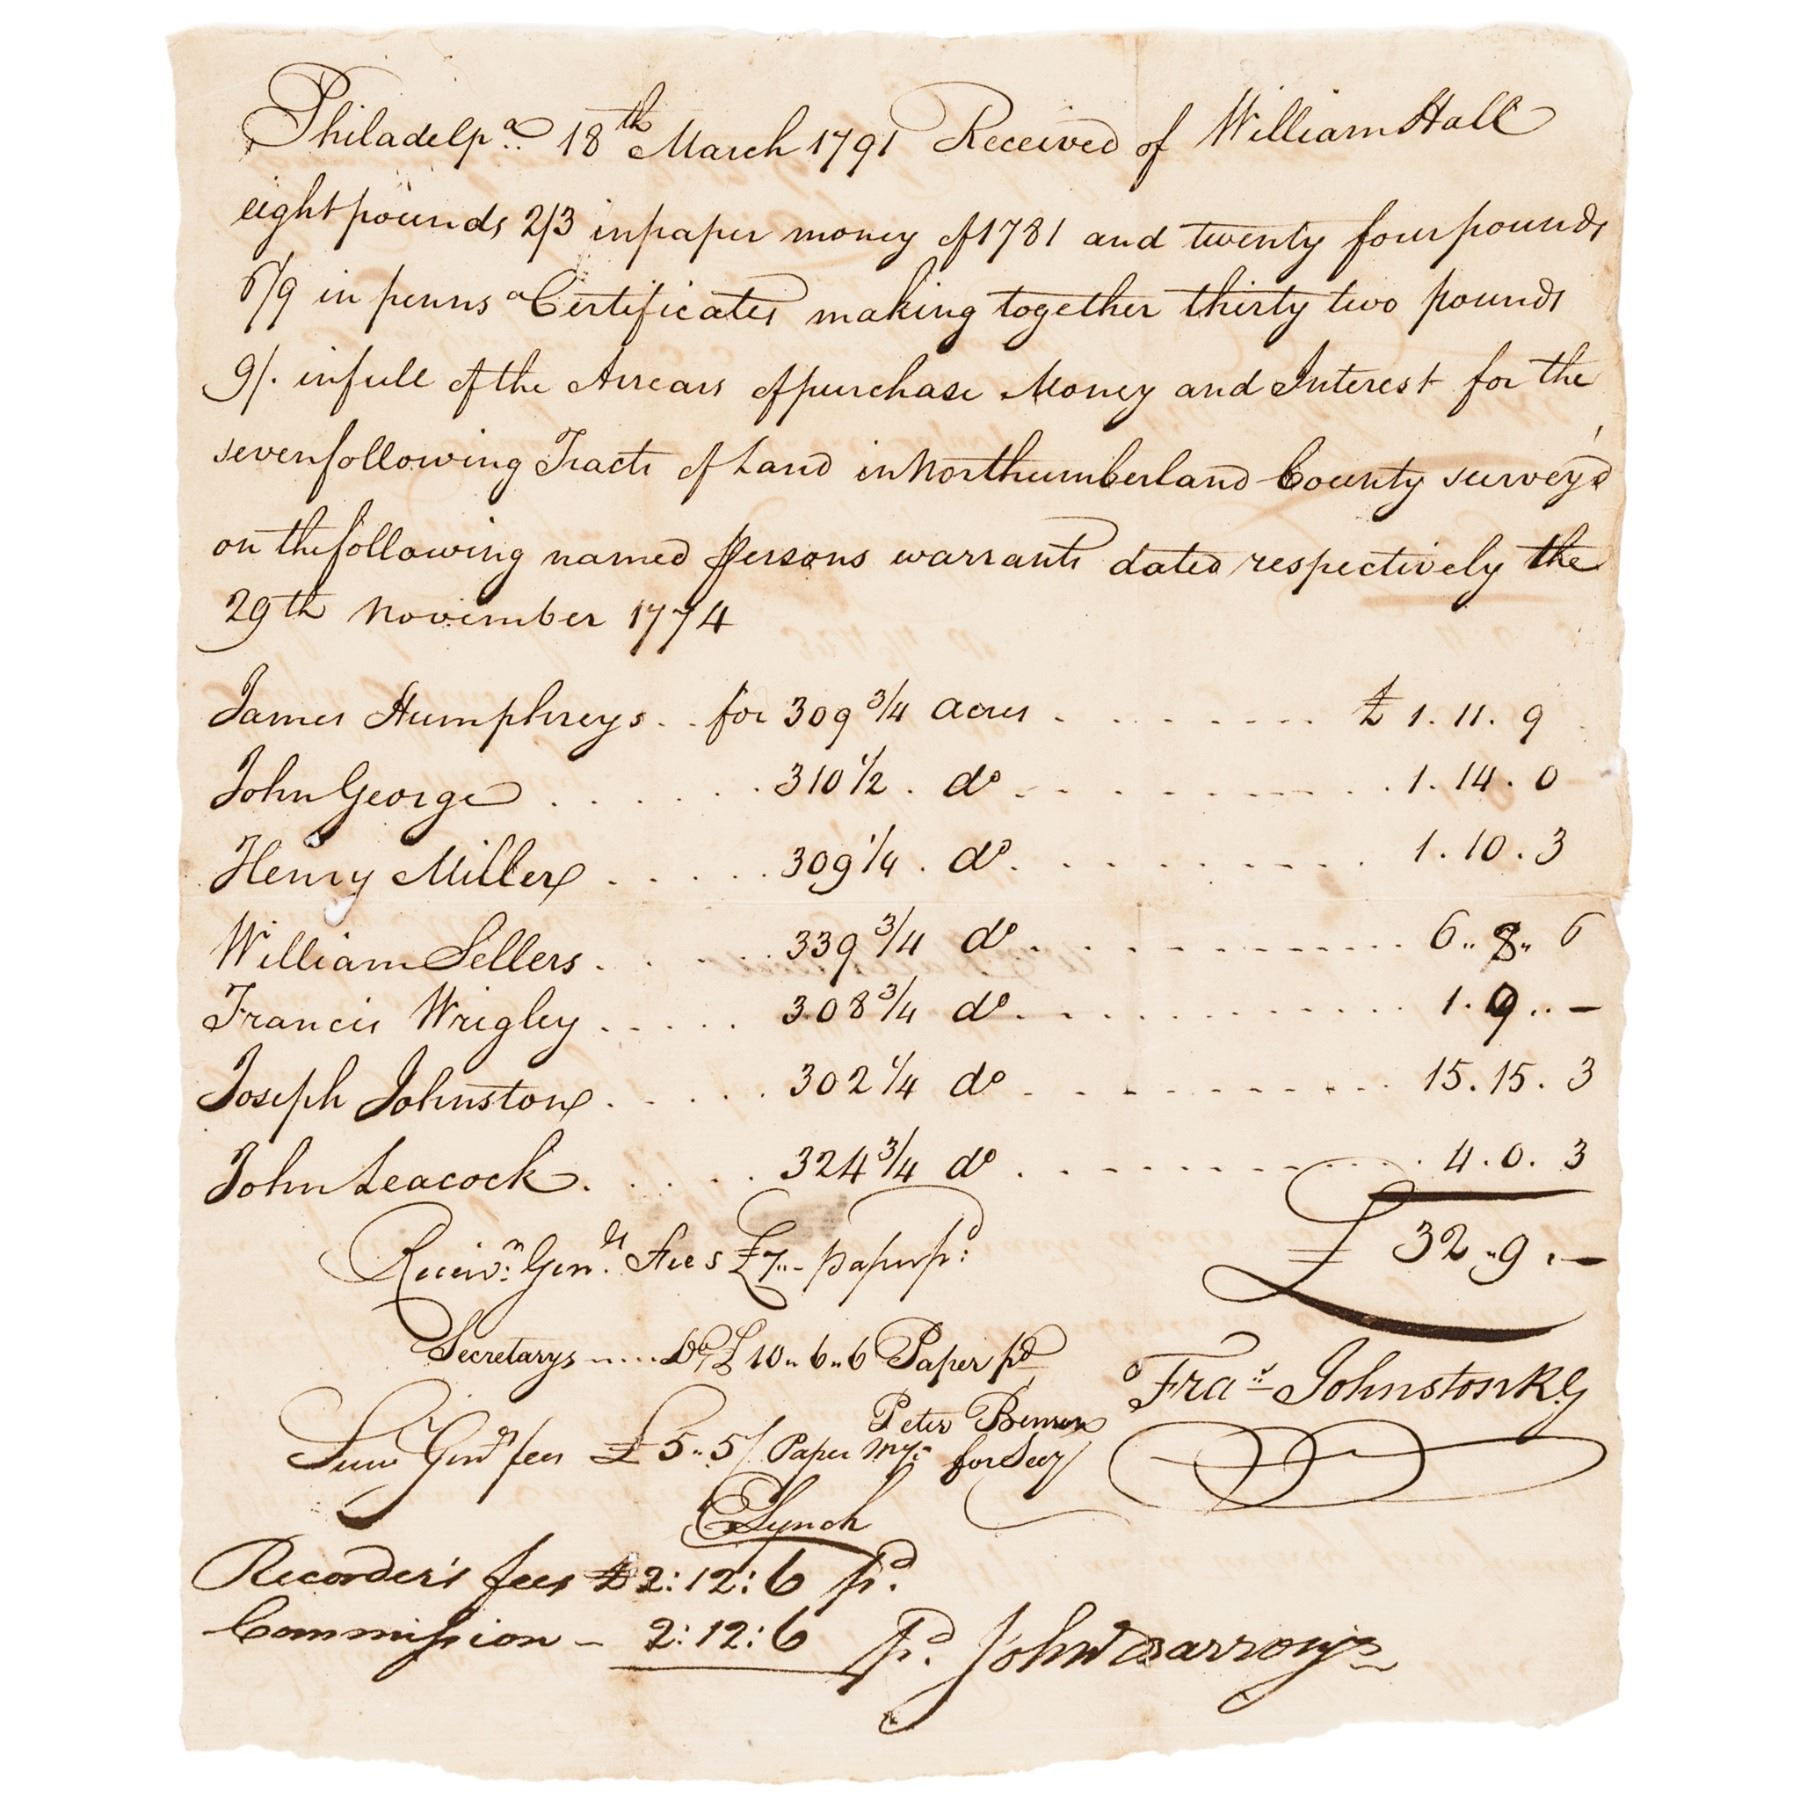 Philadelpa. 18th March 1791 Received of William Hall
eight pounds 2/3 in paper money of 1781 and twenty four pounds
6/9 in penns a Certificates making together thirty two pounds
9/. in full of the Arrears of purchase Money and Interest for the
seven following Tracts of Land in Northumberland County survey'd
on the following named Persons warrants dated respectively the
29th November 1774
James Humphreys . . for 309 3/4 acres . . . . . . . . £ 1. 11. 9
John George . . . . . . . 310 1/2 . do . . . . . . . . . . 1. 14. 0
Henry Miller . . . . . 309 1/4 . do . . . . . . . . . 1. 10. 3
William Sellers . . . . . 339 3/4 do . . . . . . . . . . 6.. 8.. 6
Francis Wrigley . . . . . 308 3/4 do . . . . . . . . . . 1. 9 .. —
Joseph Johnston . . . . . 302 1/4 do . . . . . . . . . . 15. 15. 3
John Leacock . . . . . 324 3/4 do . . . . . . . . . . 4. 0. 3
£ 32 .. 9 . —
Receivr Genls Fees £7..- paper pd:
Secretarys ..... Do £ 10.. 6.. 6 Paper pd
Fras Johnston R G
Peter Benson
Surv Genls fees £ 5.. 5/ Paper my: for Secy
Lynch
Recorder's fees £ 2:12:6 pd.
Commission — 2:12:6 pd. John Barron